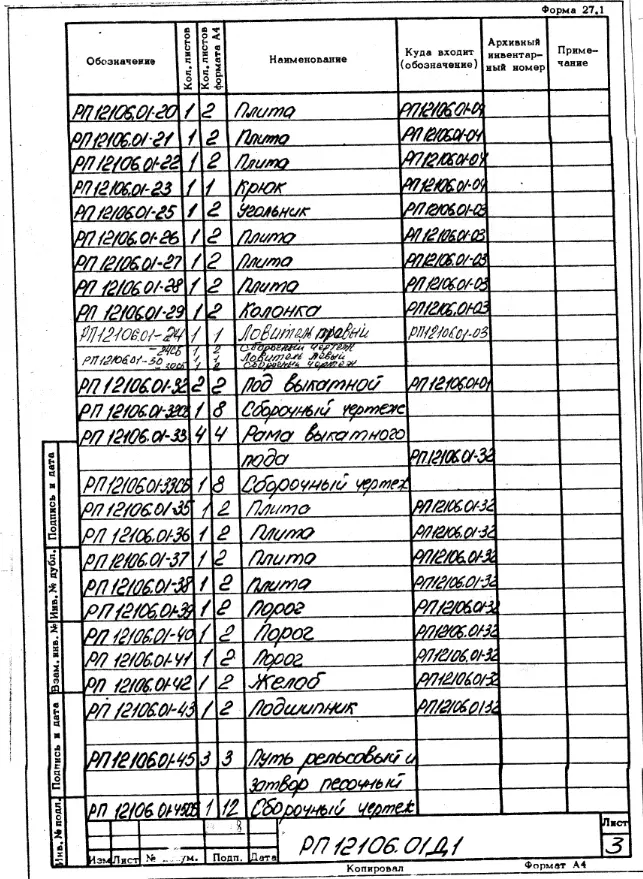 Форма 27.1
Обозначение Кол. листов Кол. листов формата А4 Наименование Куда входит (обозначение) Архивный инвентарный номер Примечание
РП12106.01-20 1 2 Плита РП12106.01-04
РП12106.01-21 1 2 Плита РП12106.01-04
РП12106.01-22 1 2 Плита РП12106.01-04
РП12106.01-23 1 1 Крюк РП12106.01-04
РП12106.01-25 1 2 Угольник РП12106.01-03
РП12106.01-26 1 2 Плита РП12106.01-03
РП12106.01-27 1 2 Плита РП12106.01-03
РП12106.01-28 1 2 Плита РП12106.01-03
РП12106.01-29 1 2 Колонка РП12106.01-03
РП12106.01-24 1 1 Ловитель правый РП12106.01-03
-24СБ 1 2 Сборочный чертеж
РП12106.01-30 1 1 Ловитель левый
-30СБ 1 2 Сборочный чертеж
РП12106.01-32 2 2 Под выкатной РП12106.01-01
РП12106.01-32СБ 1 8 Сборочный чертеж
РП12106.01-33 4 4 Рама выкатного
пода РП12106.01-32
РП12106.01-33СБ 1 8 Сборочный чертеж
РП12106.01-35 1 2 Плита РП12106.01-32
РП12106.01-36 1 2 Плита РП12106.01-32
РП12106.01-37 1 2 Плита РП12106.01-32
РП12106.01-38 1 2 Плита РП12106.01-32
РП12106.01-39 1 2 Порог РП12106.01-32
РП12106.01-40 1 2 Порог РП12106.01-32
РП12106.01-41 1 2 Порог РП12106.01-32
РП12106.01-42 1 2 Желоб РП12106.01-32
РП12106.01-43 1 2 Подшипник РП12106.01-32
РП12106.01-45 3 3 Путь рельсовый и
затвор песочный
РП12106.01-45СБ 1 12 Сборочный чертеж
Подпись и дата
Инв. № дубл.
Взам. инв. №
Подпись и дата
Инв. № подл.
Изм Лист № Подп. Дата
РП12106.01Д1
Лист
3
Копировал Формат А4